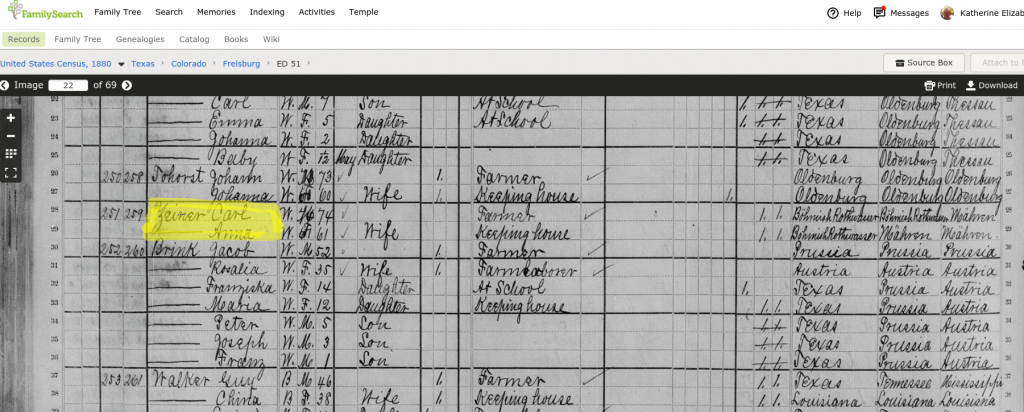 FamilySearch Family Tree Search Memories Indexing Activities Temple Help Messages Katherine Elizab
Records Family Tree Genealogies Catalog Books Wiki
United States Census, 1880 Texas Colorado Frelsburg ED 51 Source Box Attach to F
Image 22 of 69 Print Download
Carl W. M. 7 Son At School 1. Texas Oldenburg
23 Emma W. F. 5 Daughter At School 1. Texas Oldenburg
24 Johanna W. F. 2 Daughter Texas Oldenburg
25 Baby W. F. May Daughter Texas Oldenburg
26 250 258 Johann W. 73 1. Farmer Oldenburg Oldenburg Oldenburg
27 Johanna W. 60 Wife Keeping house 1. Oldenburg Oldenburg Oldenburg
28 251 259 Zeiner Carl W. 74 Farmer 1. 1. Böhmish Rothwasser Mähren
29 Anna W. 61 Wife Keeping house 1. 1. Böhmish Rothwasser Mähren Mähren
30 252 260 Brink Jacob W. M. 52 1. Farmer Prussia Prussia Prussia
31 Rosalia W. F. 35 Wife Austria Austria Austria
32 Franziska W. F. 14 Daughter At School 1. Texas Prussia Austria
33 Maria W. F. 12 Daughter Keeping house 1. 1. Texas Prussia Austria
34 Peter W. M. 5 Son Texas Prussia Austria
35 Joseph W. M. 3 Son Texas Prussia Austria
36 Franz W. M. 1 Son Texas Prussia Austria
37 253 261 Walker Guy B M 46 1. Farmer 1. 1. Texas Tennessee Mississippi
38 B F 38 Wife 1. Keeping house 1. 1. Louisiana Louisiana Louisiana